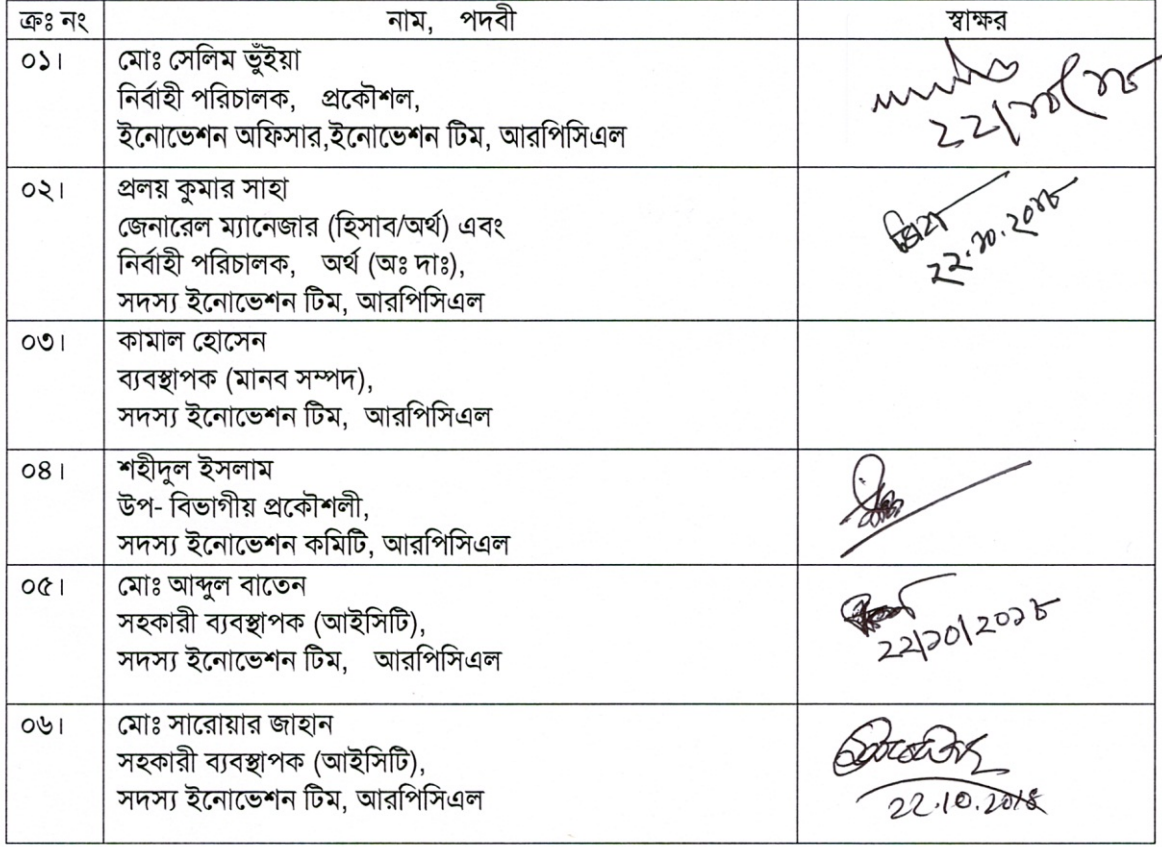 ক্রঃ নং নাম, পদবী স্বাক্ষর
০১। মোঃ সেলিম ভূঁইয়া
নির্বাহী পরিচালক, প্রকৌশল,
ইনোভেশন অফিসার,ইনোভেশন টিম, আরপিসিএল
০২। প্রলয় কুমার সাহা
জেনারেল ম্যানেজার (হিসাব/অর্থ) এবং
নির্বাহী পরিচালক, অর্থ (অঃ দাঃ),
সদস্য ইনোভেশন টিম, আরপিসিএল
২২.১০.২০১৮
০৩। কামাল হোসেন
ব্যবস্থাপক (মানব সম্পদ),
সদস্য ইনোভেশন টিম, আরপিসিএল
০৪। শহীদুল ইসলাম
উপ- বিভাগীয় প্রকৌশলী,
সদস্য ইনোভেশন কমিটি, আরপিসিএল
০৫। মোঃ আব্দুল বাতেন
সহকারী ব্যবস্থাপক (আইসিটি),
সদস্য ইনোভেশন টিম, আরপিসিএল
২২/১০/২০১৮
০৬। মোঃ সারোয়ার জাহান
সহকারী ব্যবস্থাপক (আইসিটি),
সদস্য ইনোভেশন টিম, আরপিসিএল
22.10.2018